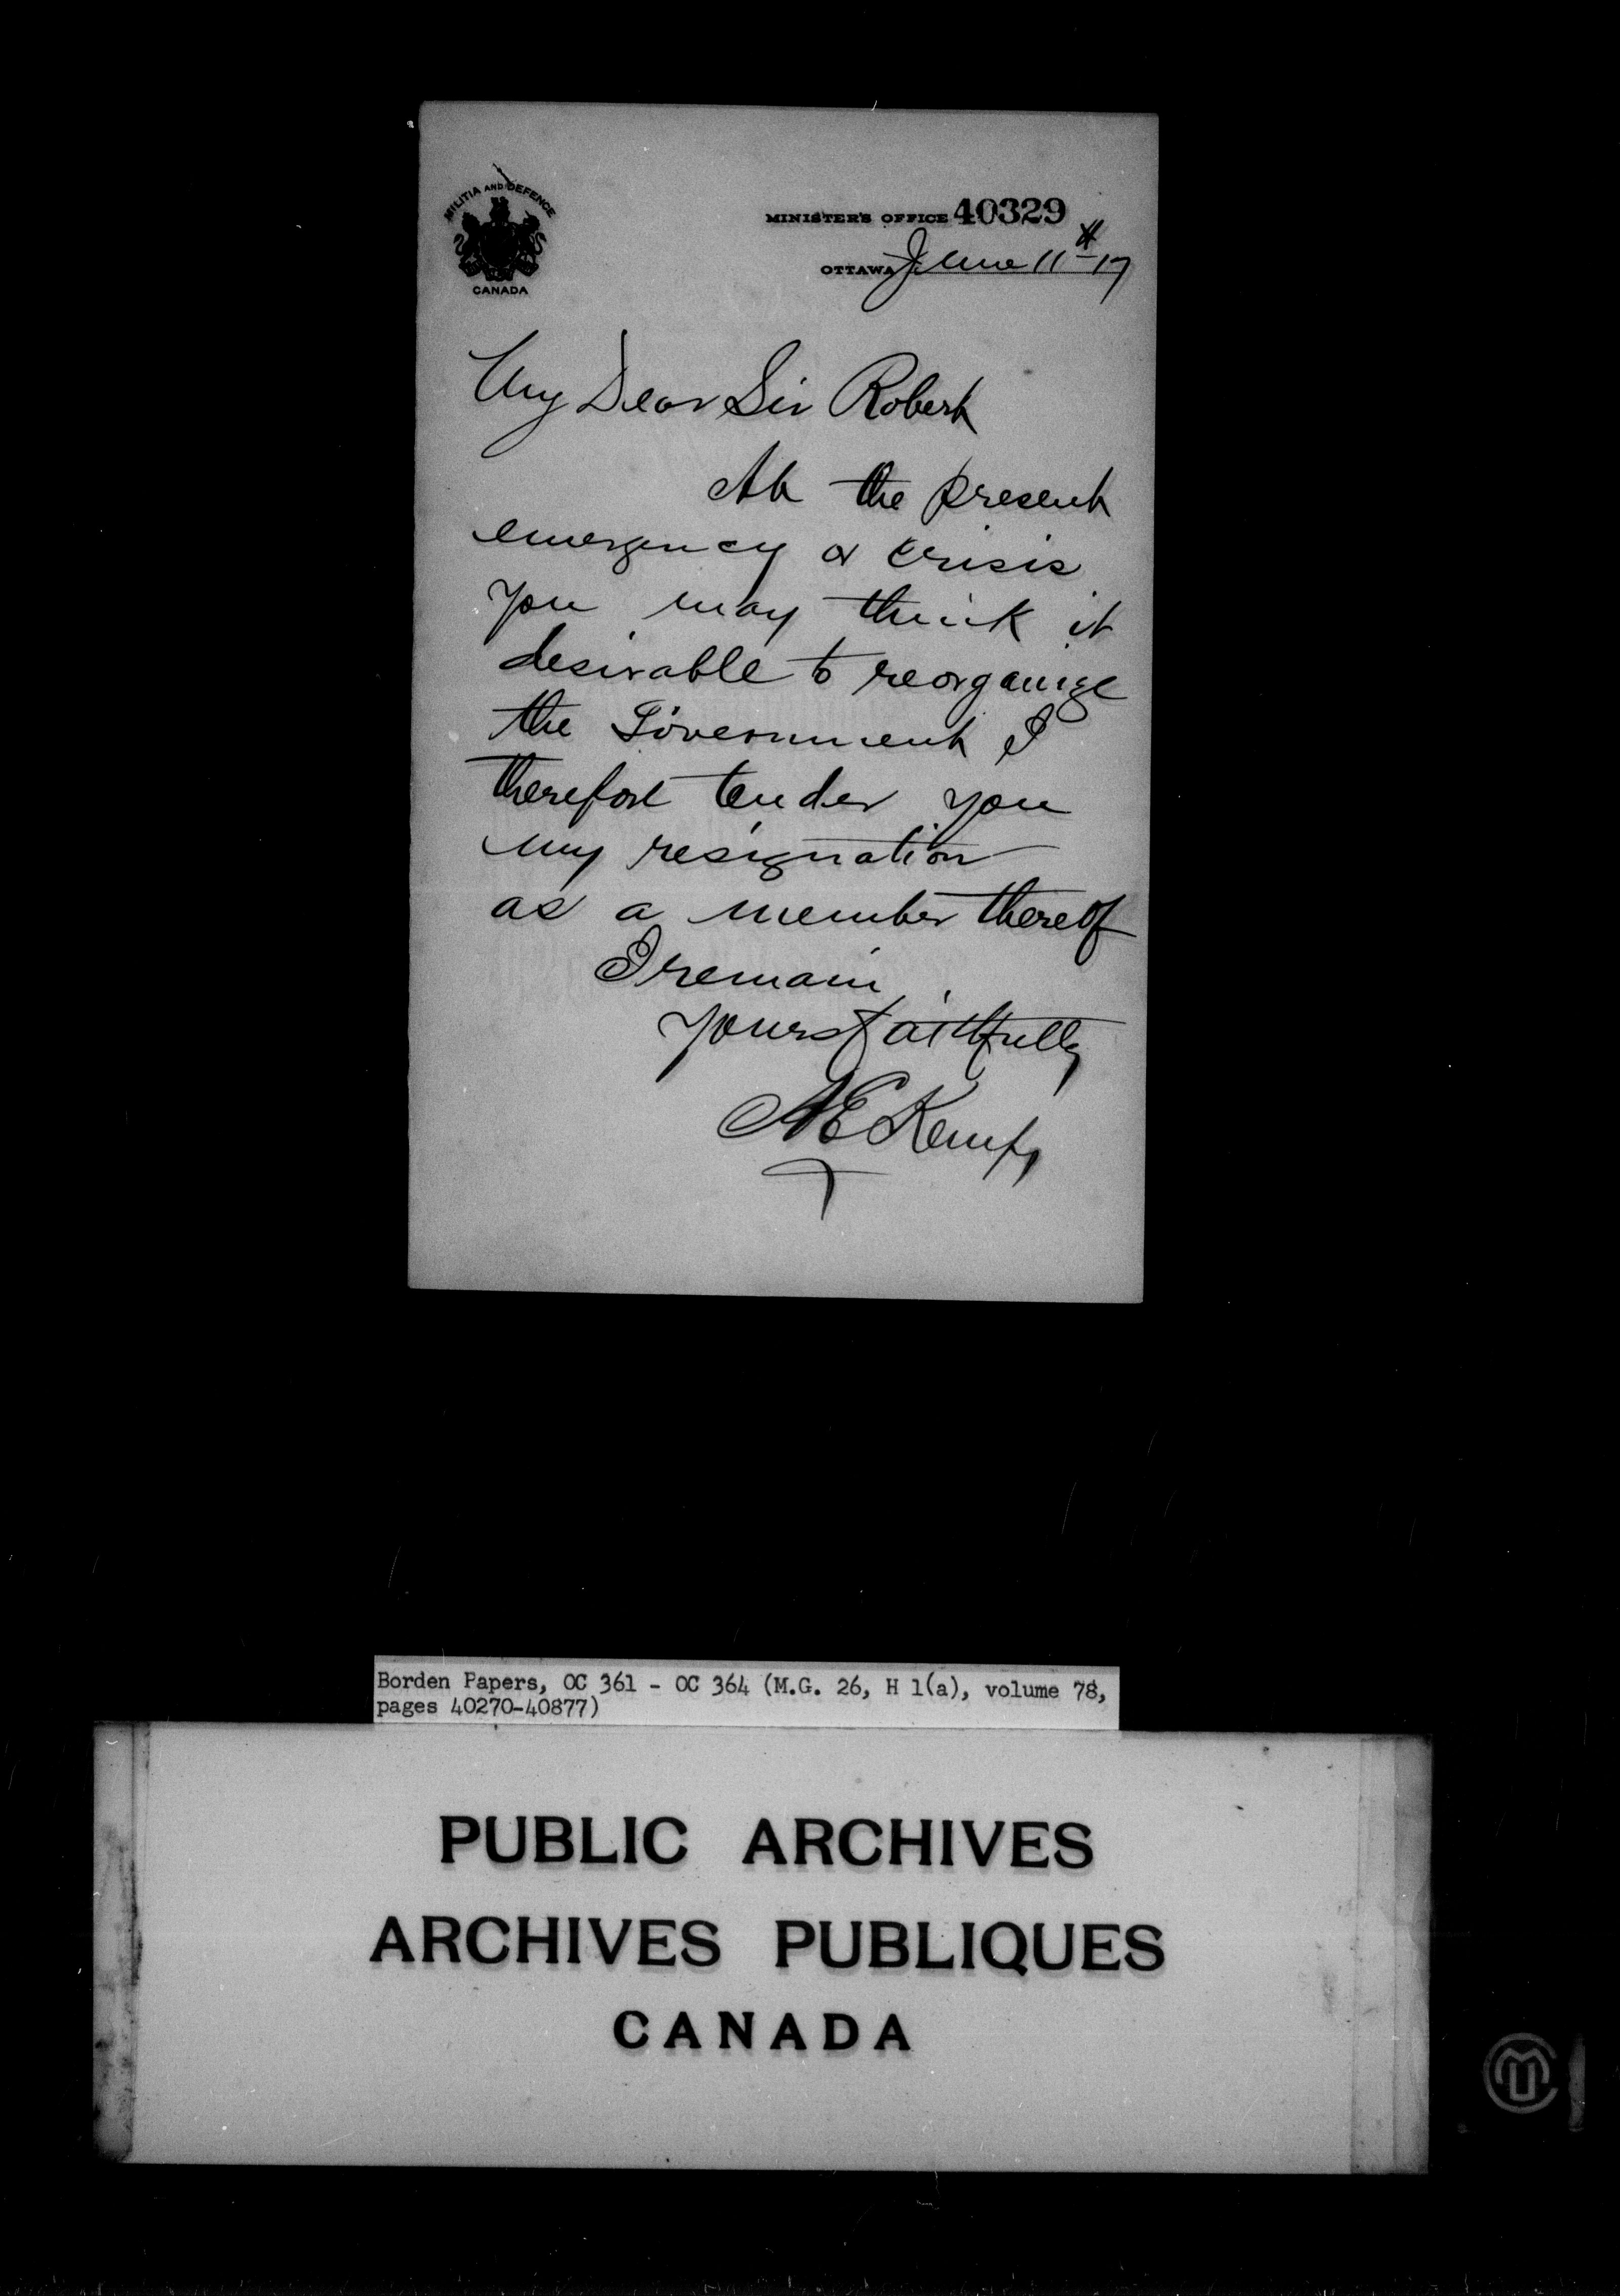 MILITIA AND DEFENCE
CANADA
MINISTER'S OFFICE 40329
OTTAWA June 11th-17
My Dear Sir Robert
At the present
emergency or crisis
you may think it
desirable to reorganize
the Government I
therefore tender you
my resignation
as a member thereof
I remain
Yours faithfully
AE Kemp
Borden Papers, OC 361 - OC 364 (M.G. 26, H 1(a), volume 78,
pages 40270-40877)
PUBLIC ARCHIVES
ARCHIVES PUBLIQUES
CANADA